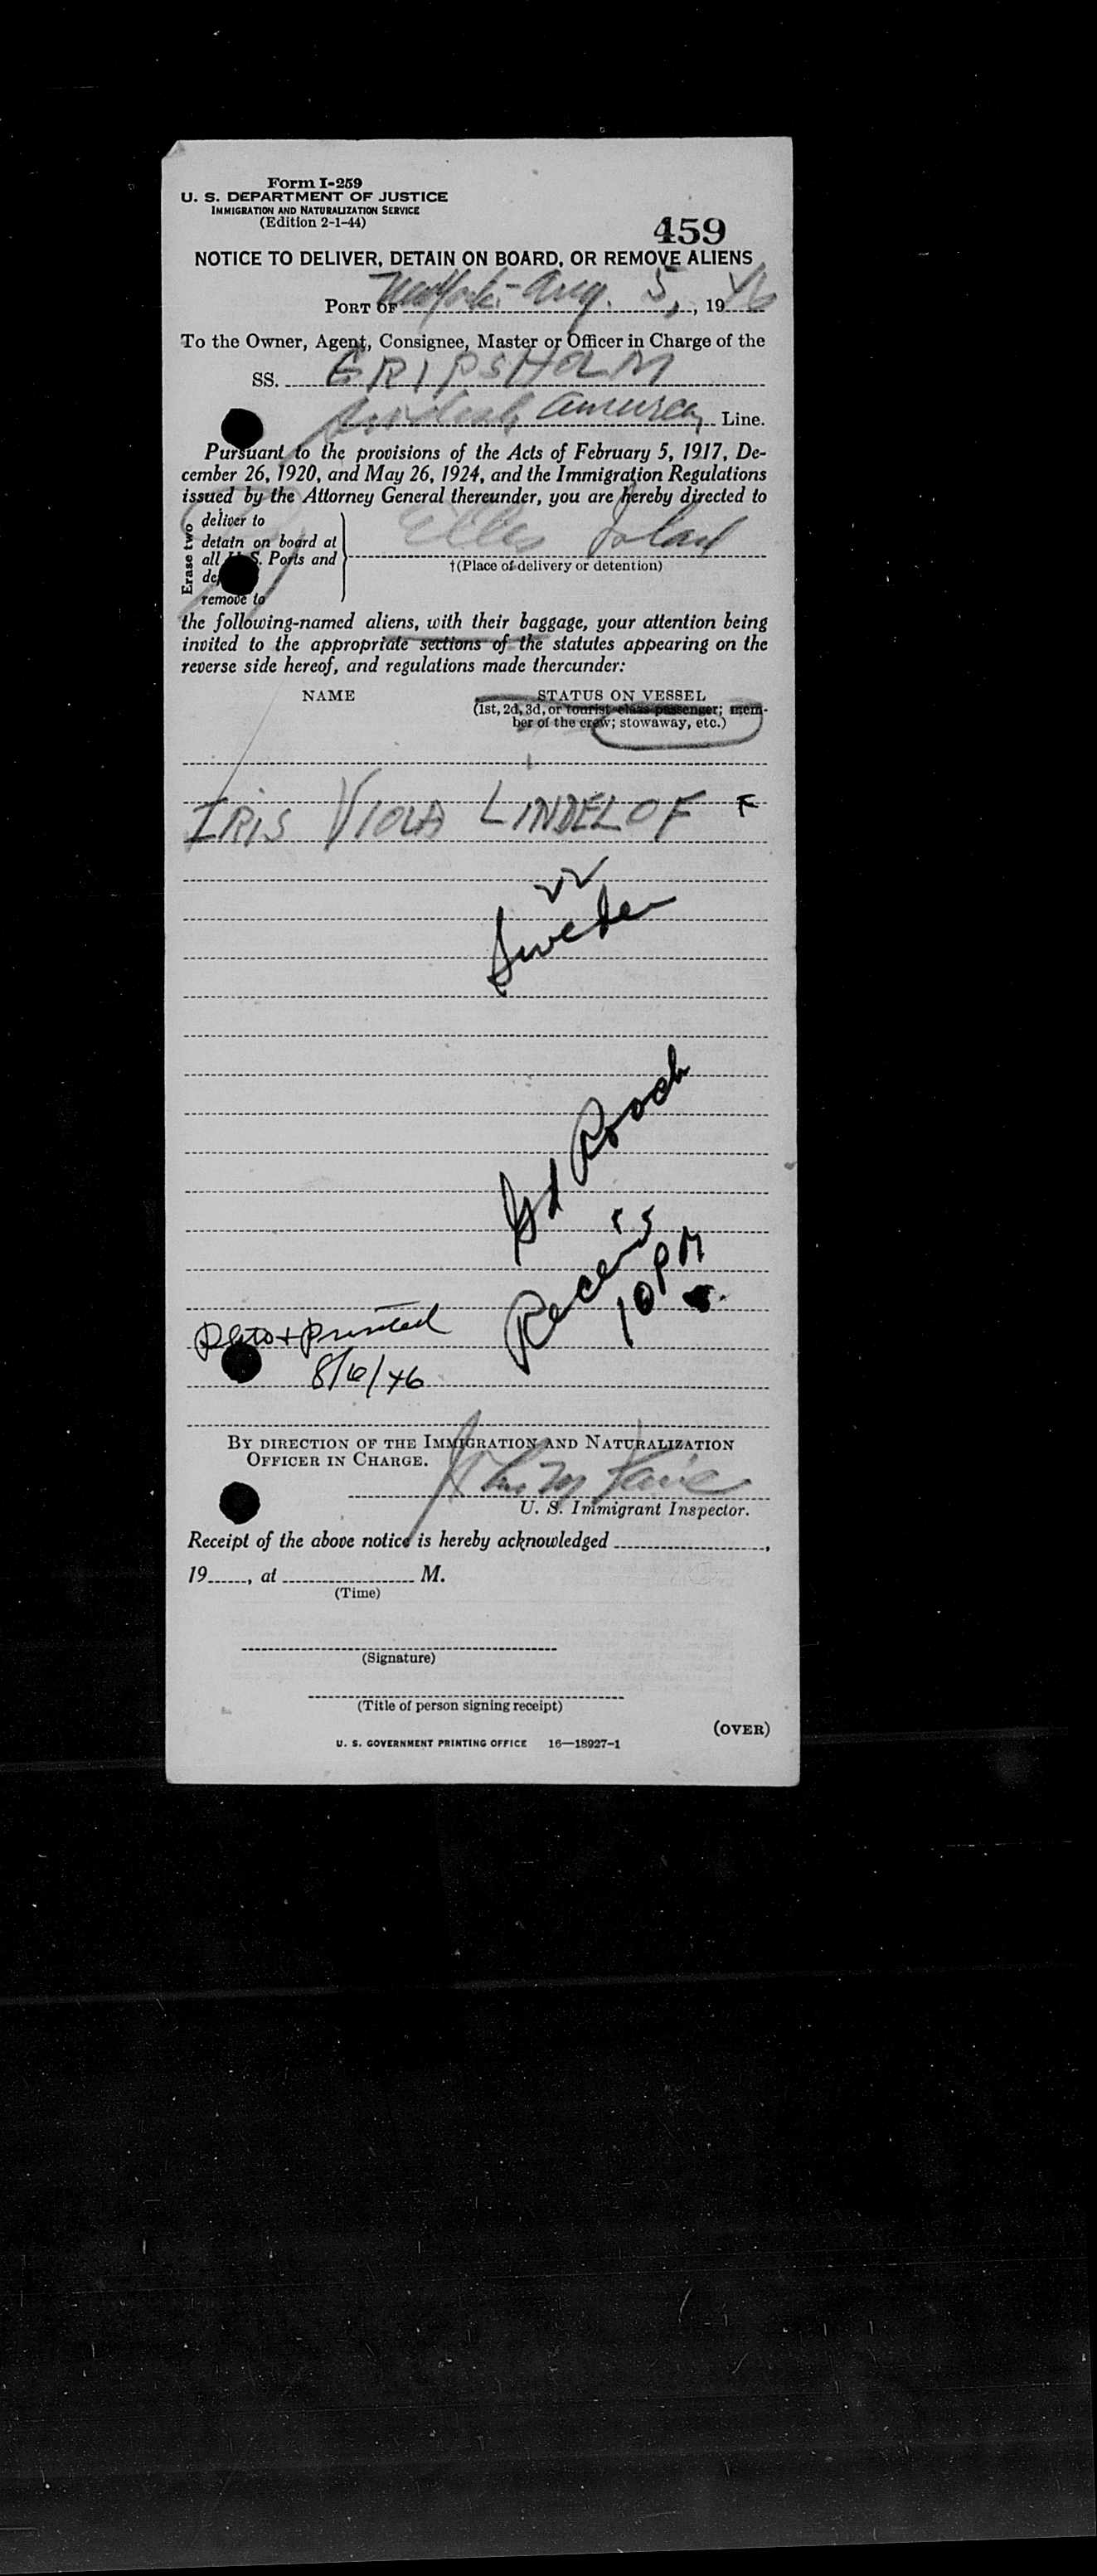 Form I-259
U. S. DEPARTMENT OF JUSTICE
IMMIGRATION AND NATURALIZATION SERVICE
(Edition 2-1-44)
459
NOTICE TO DELIVER, DETAIN ON BOARD, OR REMOVE ALIENS
PORT OF New York - Aug. 5, 1946
To the Owner, Agent, Consignee, Master or Officer in Charge of the
SS. GRIPSHOLM
Swedish American Line.
Pursuant to the provisions of the Acts of February 5, 1917, De-
cember 26, 1920, and May 26, 1924, and the Immigration Regulations
issued by the Attorney General thereunder, you are hereby directed to
Erase two
deliver to
detain on board at
all U. S. Ports and
remove to
Ellis Island
†(Place of delivery or detention)
the following-named aliens, with their baggage, your attention being
invited to the appropriate sections of the statutes appearing on the
reverse side hereof, and regulations made thereunder:
NAME STATUS ON VESSEL
(1st, 2d, 3d, or tourist-class passenger; mem-
ber of the crew; stowaway, etc.)
IRIS VIOLA LINDELOF F
22
Sweden
Gd Roach
10 PM
Photo + Printed
8/6/46
BY DIRECTION OF THE IMMIGRATION AND NATURALIZATION
OFFICER IN CHARGE.
U. S. Immigrant Inspector.
Receipt of the above notice is hereby acknowledged ,
19 , at M.
(Time)
(Signature)
(Title of person signing receipt)
(OVER)
U. S. GOVERNMENT PRINTING OFFICE 16—18927-1